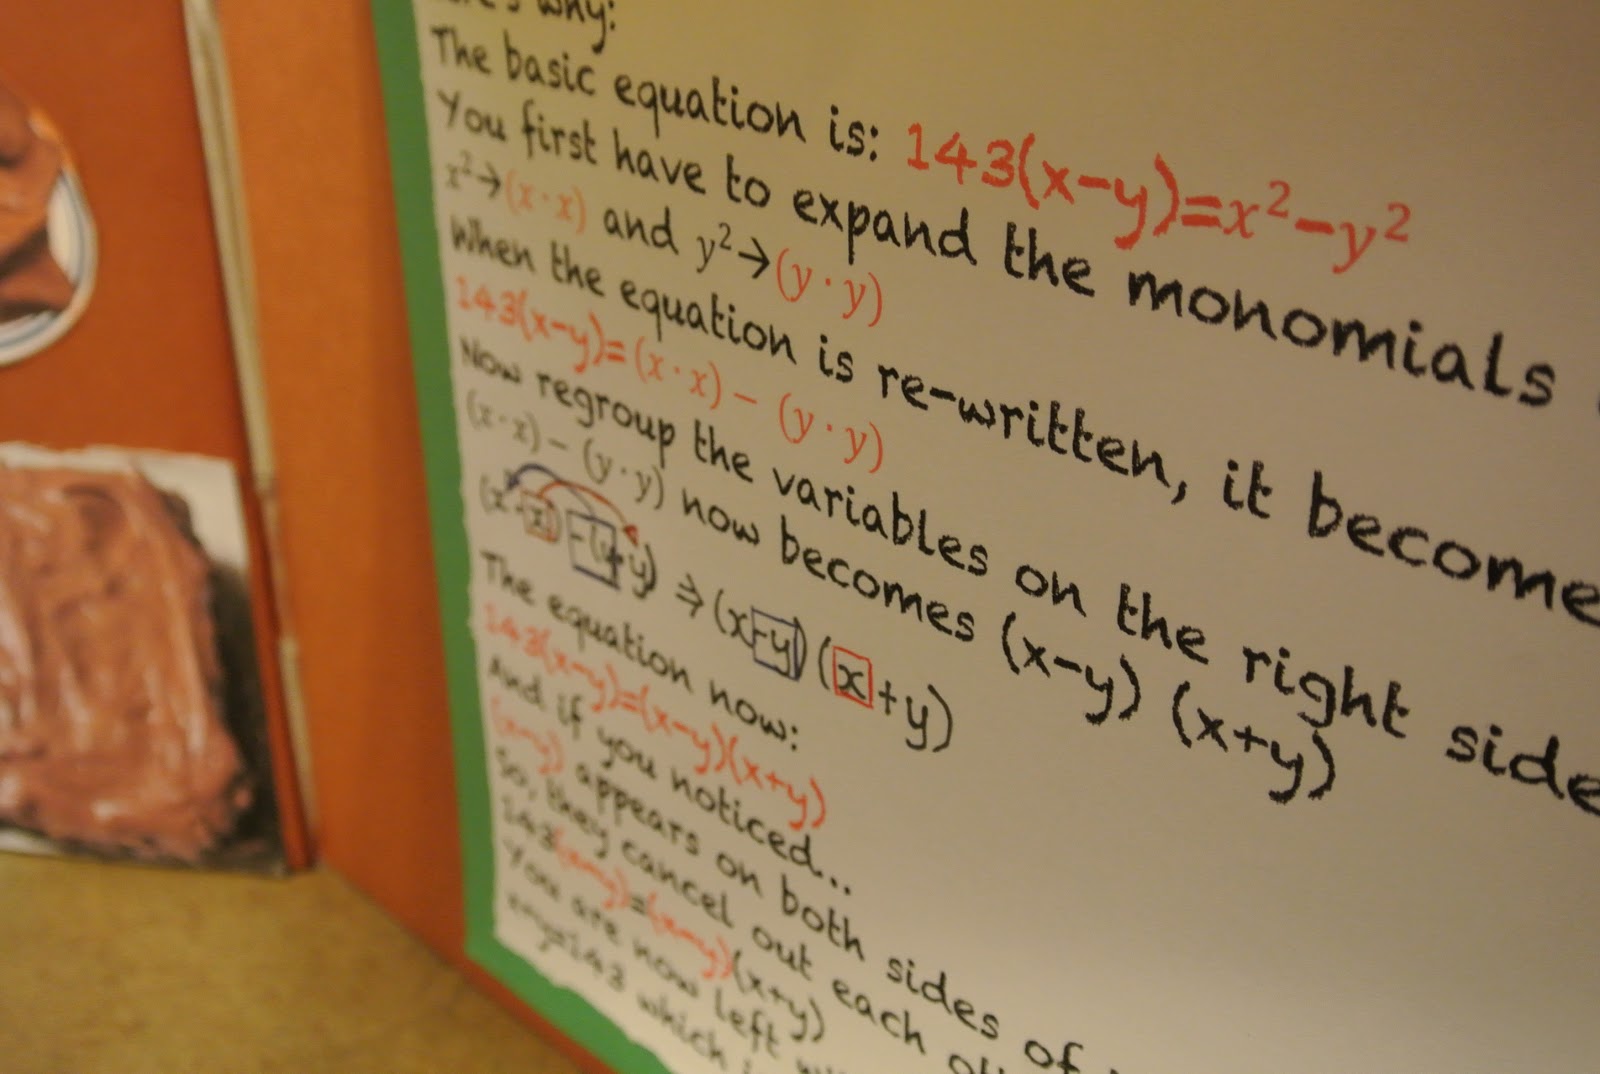 why:
The basic equation is: 143(x-y)=x²-y²
You first have to expand the monomials
x²→(x·x) and y²→(y·y)
When the equation is re-written, it become
143(x-y)=(x·x)-(y·y)
Now regroup the variables on the right side
(x·x)-(y·y) now becomes (x-y) (x+y)
(x·x)-(y·y) ⇒ (x-y) (x+y)
The equation now:
143(x-y)=(x-y)(x+y)
And if you noticed...
(x-y) appears on both sides of
So, they cancel out each
143(x-y)=(x-y)(x+y)
You are now left
x+y=143 which